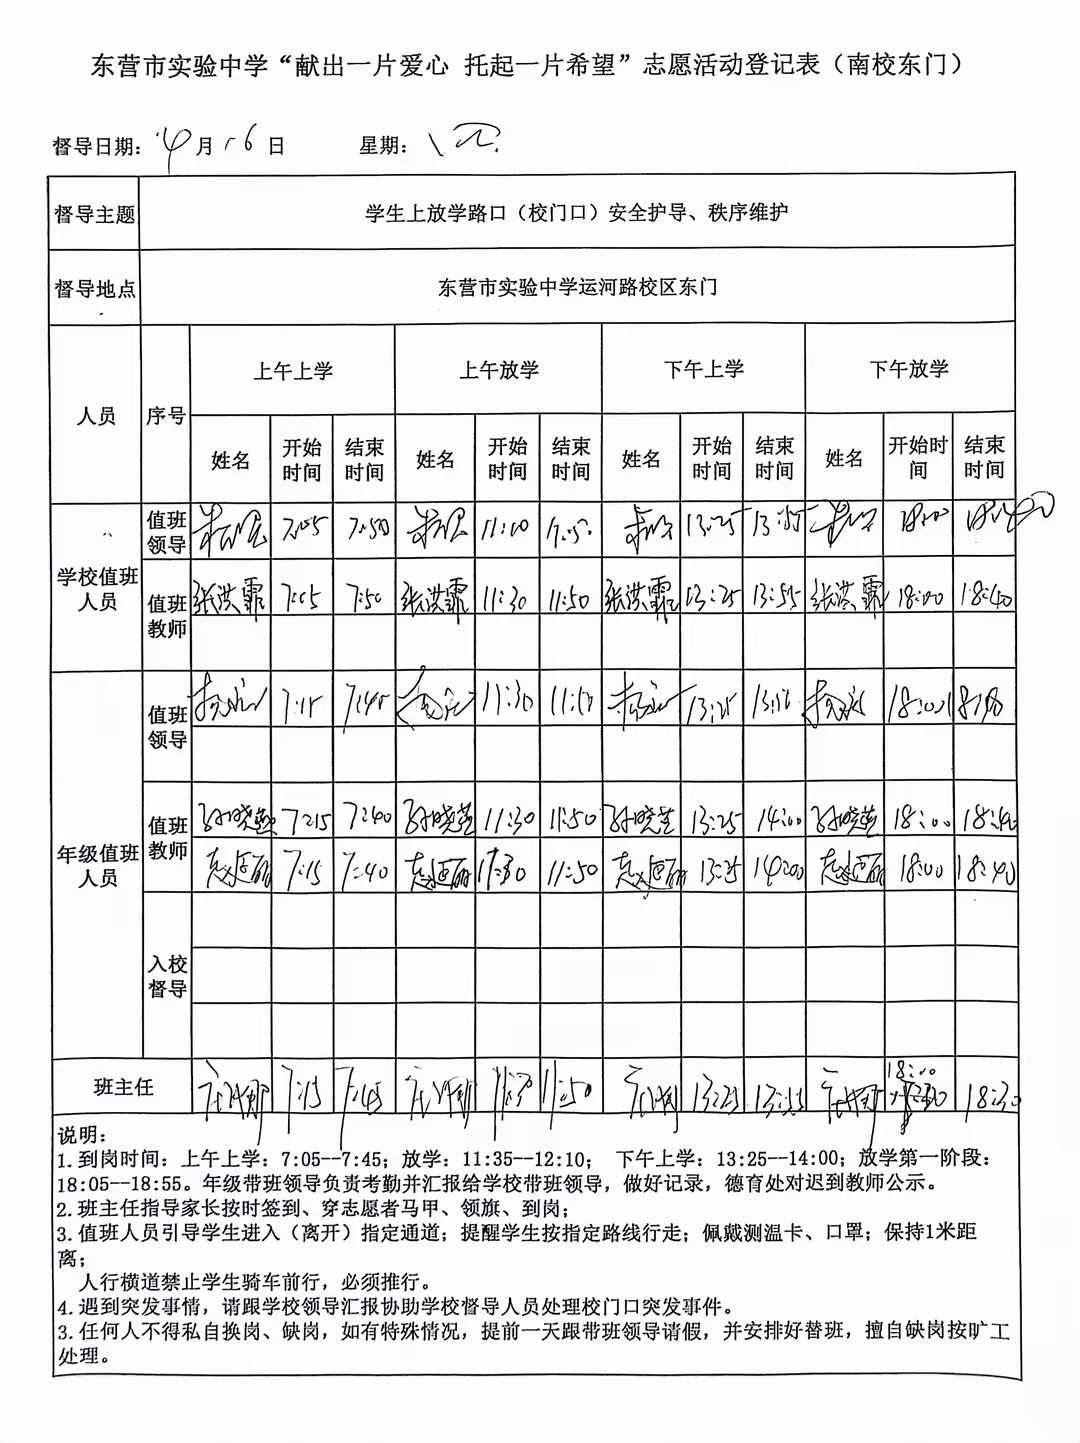 东营市实验中学“献出一片爱心 托起一片希望”志愿活动登记表（南校东门）
督导日期： 4月16日 星期： 四
督导主题 学生上放学路口（校门口）安全护导、秩序维护
督导地点 东营市实验中学运河路校区东门
人员 序号 上午上学 上午放学 下午上学 下午放学
姓名 开始时间 结束时间 姓名 开始时间 结束时间 姓名 开始时间 结束时间 姓名 开始时间 结束时间
学校值班人员
值班领导 7:05 7:50 13:25 13:55 18:00
值班教师 张洪霏 7:05 7:50 张洪霏 11:30 11:50 张洪霏 13:25 13:55 张洪霏 18:00 18:40
年级值班人员
值班领导 7:15 7:45 11:30 13:25
值班教师 孙晓燕 7:15 7:40 孙晓燕 11:30 11:50 孙晓燕 13:25 14:00 孙晓燕 18:00 18:40
7:15 7:40 11:30 11:50 13:25 14:00 18:00 18:40
入校督导
班主任 7:15 7:45 11:50 13:25 13:55 18:00 18:30
说明：
1.到岗时间：上午上学：7:05--7:45；放学：11:35--12:10； 下午上学：13:25--14:00；放学第一阶段：
18:05--18:55。年级带班领导负责考勤并汇报给学校带班领导，做好记录，德育处对迟到教师公示。
2.班主任指导家长按时签到、穿志愿者马甲、领旗、到岗；
3.值班人员引导学生进入（离开）指定通道；提醒学生按指定路线行走；佩戴测温卡、口罩；保持1米距
离；
人行横道禁止学生骑车前行，必须推行。
4.遇到突发事情，请跟学校领导汇报协助学校督导人员处理校门口突发事件。
3.任何人不得私自换岗、缺岗，如有特殊情况，提前一天跟带班领导请假，并安排好替班，擅自缺岗按旷工
处理。